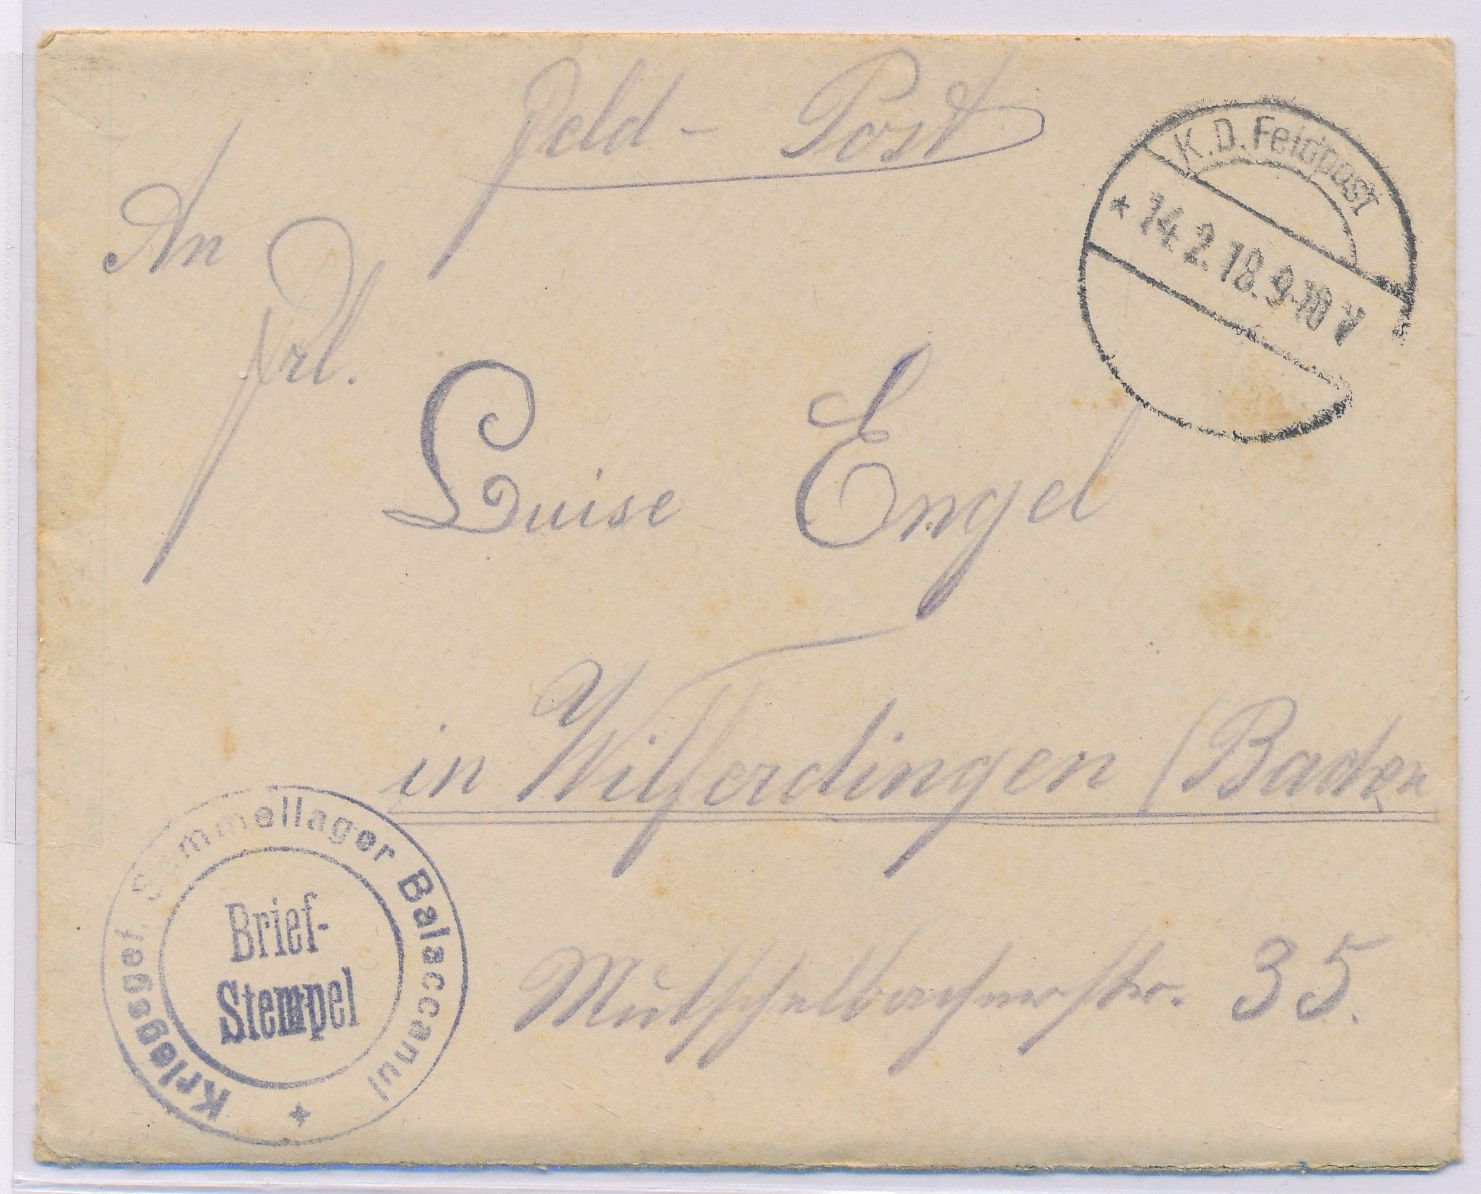 Feld - Post
K.D. Feldpost
* 14.2.18.9-10 V
An
Frl.
Luise Engel
in Wilferdingen (Baden
Mutschelbacherstr. 35.
Kriegsgef. Sammellager Balaccanul
Brief-
Stempel